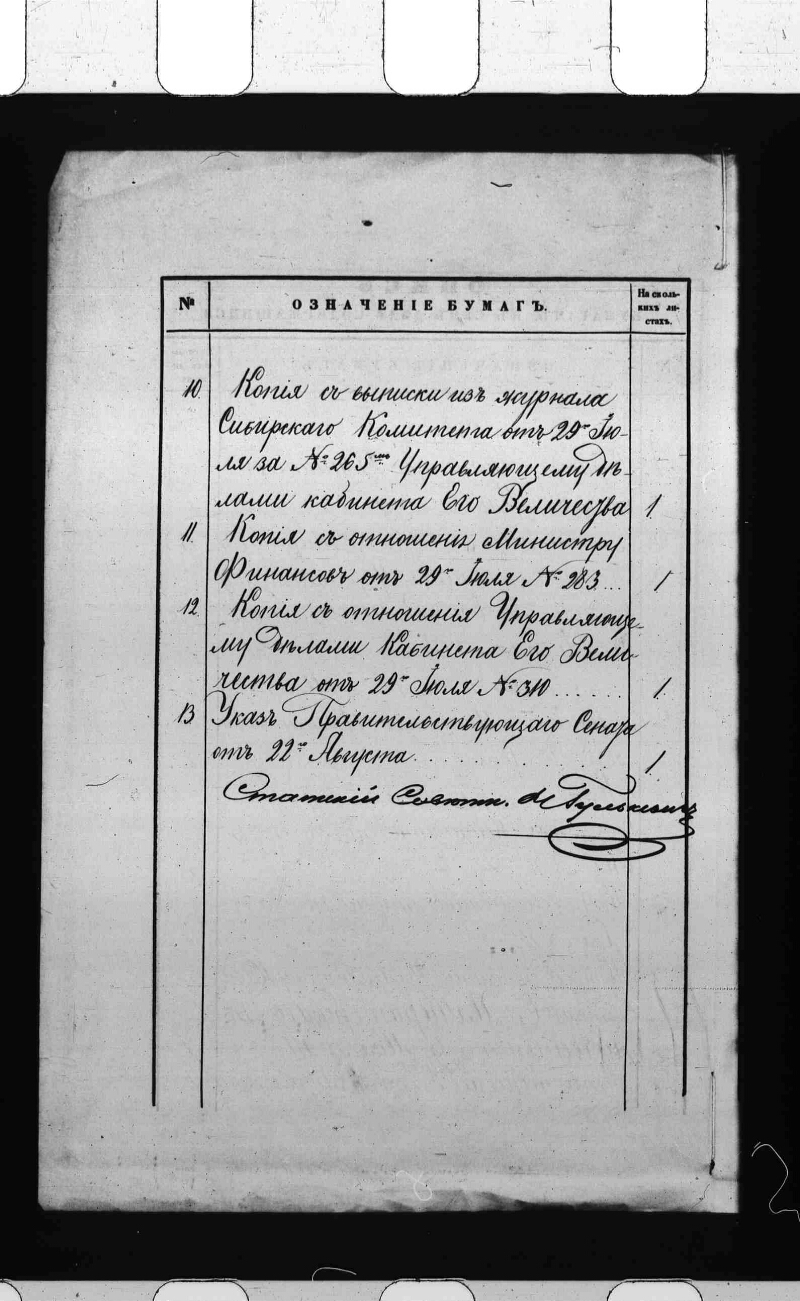 № ОЗНАЧЕНІЕ БУМАГЪ. На сколь-
кихъ ли-
стахъ.
10. Копія съ выписки изъ журнала
Сибирскаго Комитета отъ 29го Ію-
ля за № 265мъ Управляющему дѣ-
лами кабинета Его Величества 1
11. Копія съ отношенія Министру
Финансовъ отъ 29го Іюля № 283... 1
12. Копія съ отношенія Управляюще-
му дѣлами Кабинета Его Вели-
чества отъ 29го Іюля № 310...... 1
13 Указъ Правительствующаго Сената
отъ 22го Августа......... 1
Статскій Совѣтн.